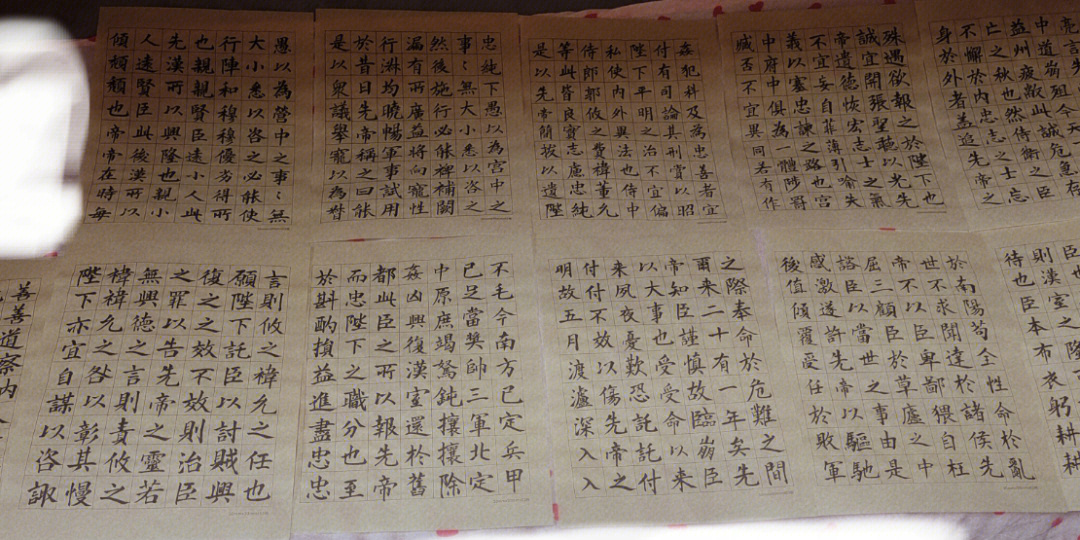 益州疲敝此誠危急存
亡之秋也然侍衛之臣
不懈於內忠志之士忘
身於外者盖追先帝之
殊遇欲報之於陛下也
誠宜開張聖聽以光先
帝遺德恢宏志士之氣
不宜妄自菲薄引喻失
義以塞忠諫之路也宮
中府中俱為一體陟罰
臧否不宜異同若有作
姦犯科及為忠善者宜
付有司論其刑賞以昭
陛下平明之治不宜偏
私使內外異法也侍中
侍郎郭攸之費禕董允
等此皆良實志慮忠純
是以先帝簡拔以遺陛
忠純下愚以為宮中之
事〻無大小悉以咨之
然後施行必能裨補闕
漏有所廣益將向寵性
行淋均曉暢軍事試用
於昔日先帝稱之曰能
是以衆議舉寵以為督
愚以為營中之事〻無
大小悉以咨之必能使
行陣和穆穆優劣得所
也親親賢臣遠小人此
先漢所以興隆也親小
人遠賢臣此後漢所以
傾頹頹也帝在時每
則漢室之隆
待也臣本布衣躬耕
於南陽苟全性命於亂
世不求聞達於諸侯先
帝不以臣卑鄙猥自枉
屈三顧臣於草廬之中
諮臣以當世之事由是
感激遂許先帝以驅馳
後值傾覆受任於敗軍
之際奉命於危難之間
爾来二十有一年矣先
帝知臣謹慎故臨崩臣
以大事也受受命以来
来夙夜憂歎恐託託付
付付不效以傷先帝之
明故五月渡瀘深入入
不毛今南方已定兵甲
已足當獎帥三軍北定
中原庶竭駑鈍攘攘除
姦凶興復漢室還於舊
都此臣之所以報先帝
而忠陛下之職分也至
於斟酌損益進盡忠忠
言則攸之禕允之任也
願陛下託臣以討賊興
復之之效不效則治臣
之罪以告先帝之靈若
無興德之言則責攸之
禕禕允之咎以彰其慢
陛下亦宜自謀以咨諏
善善道察納